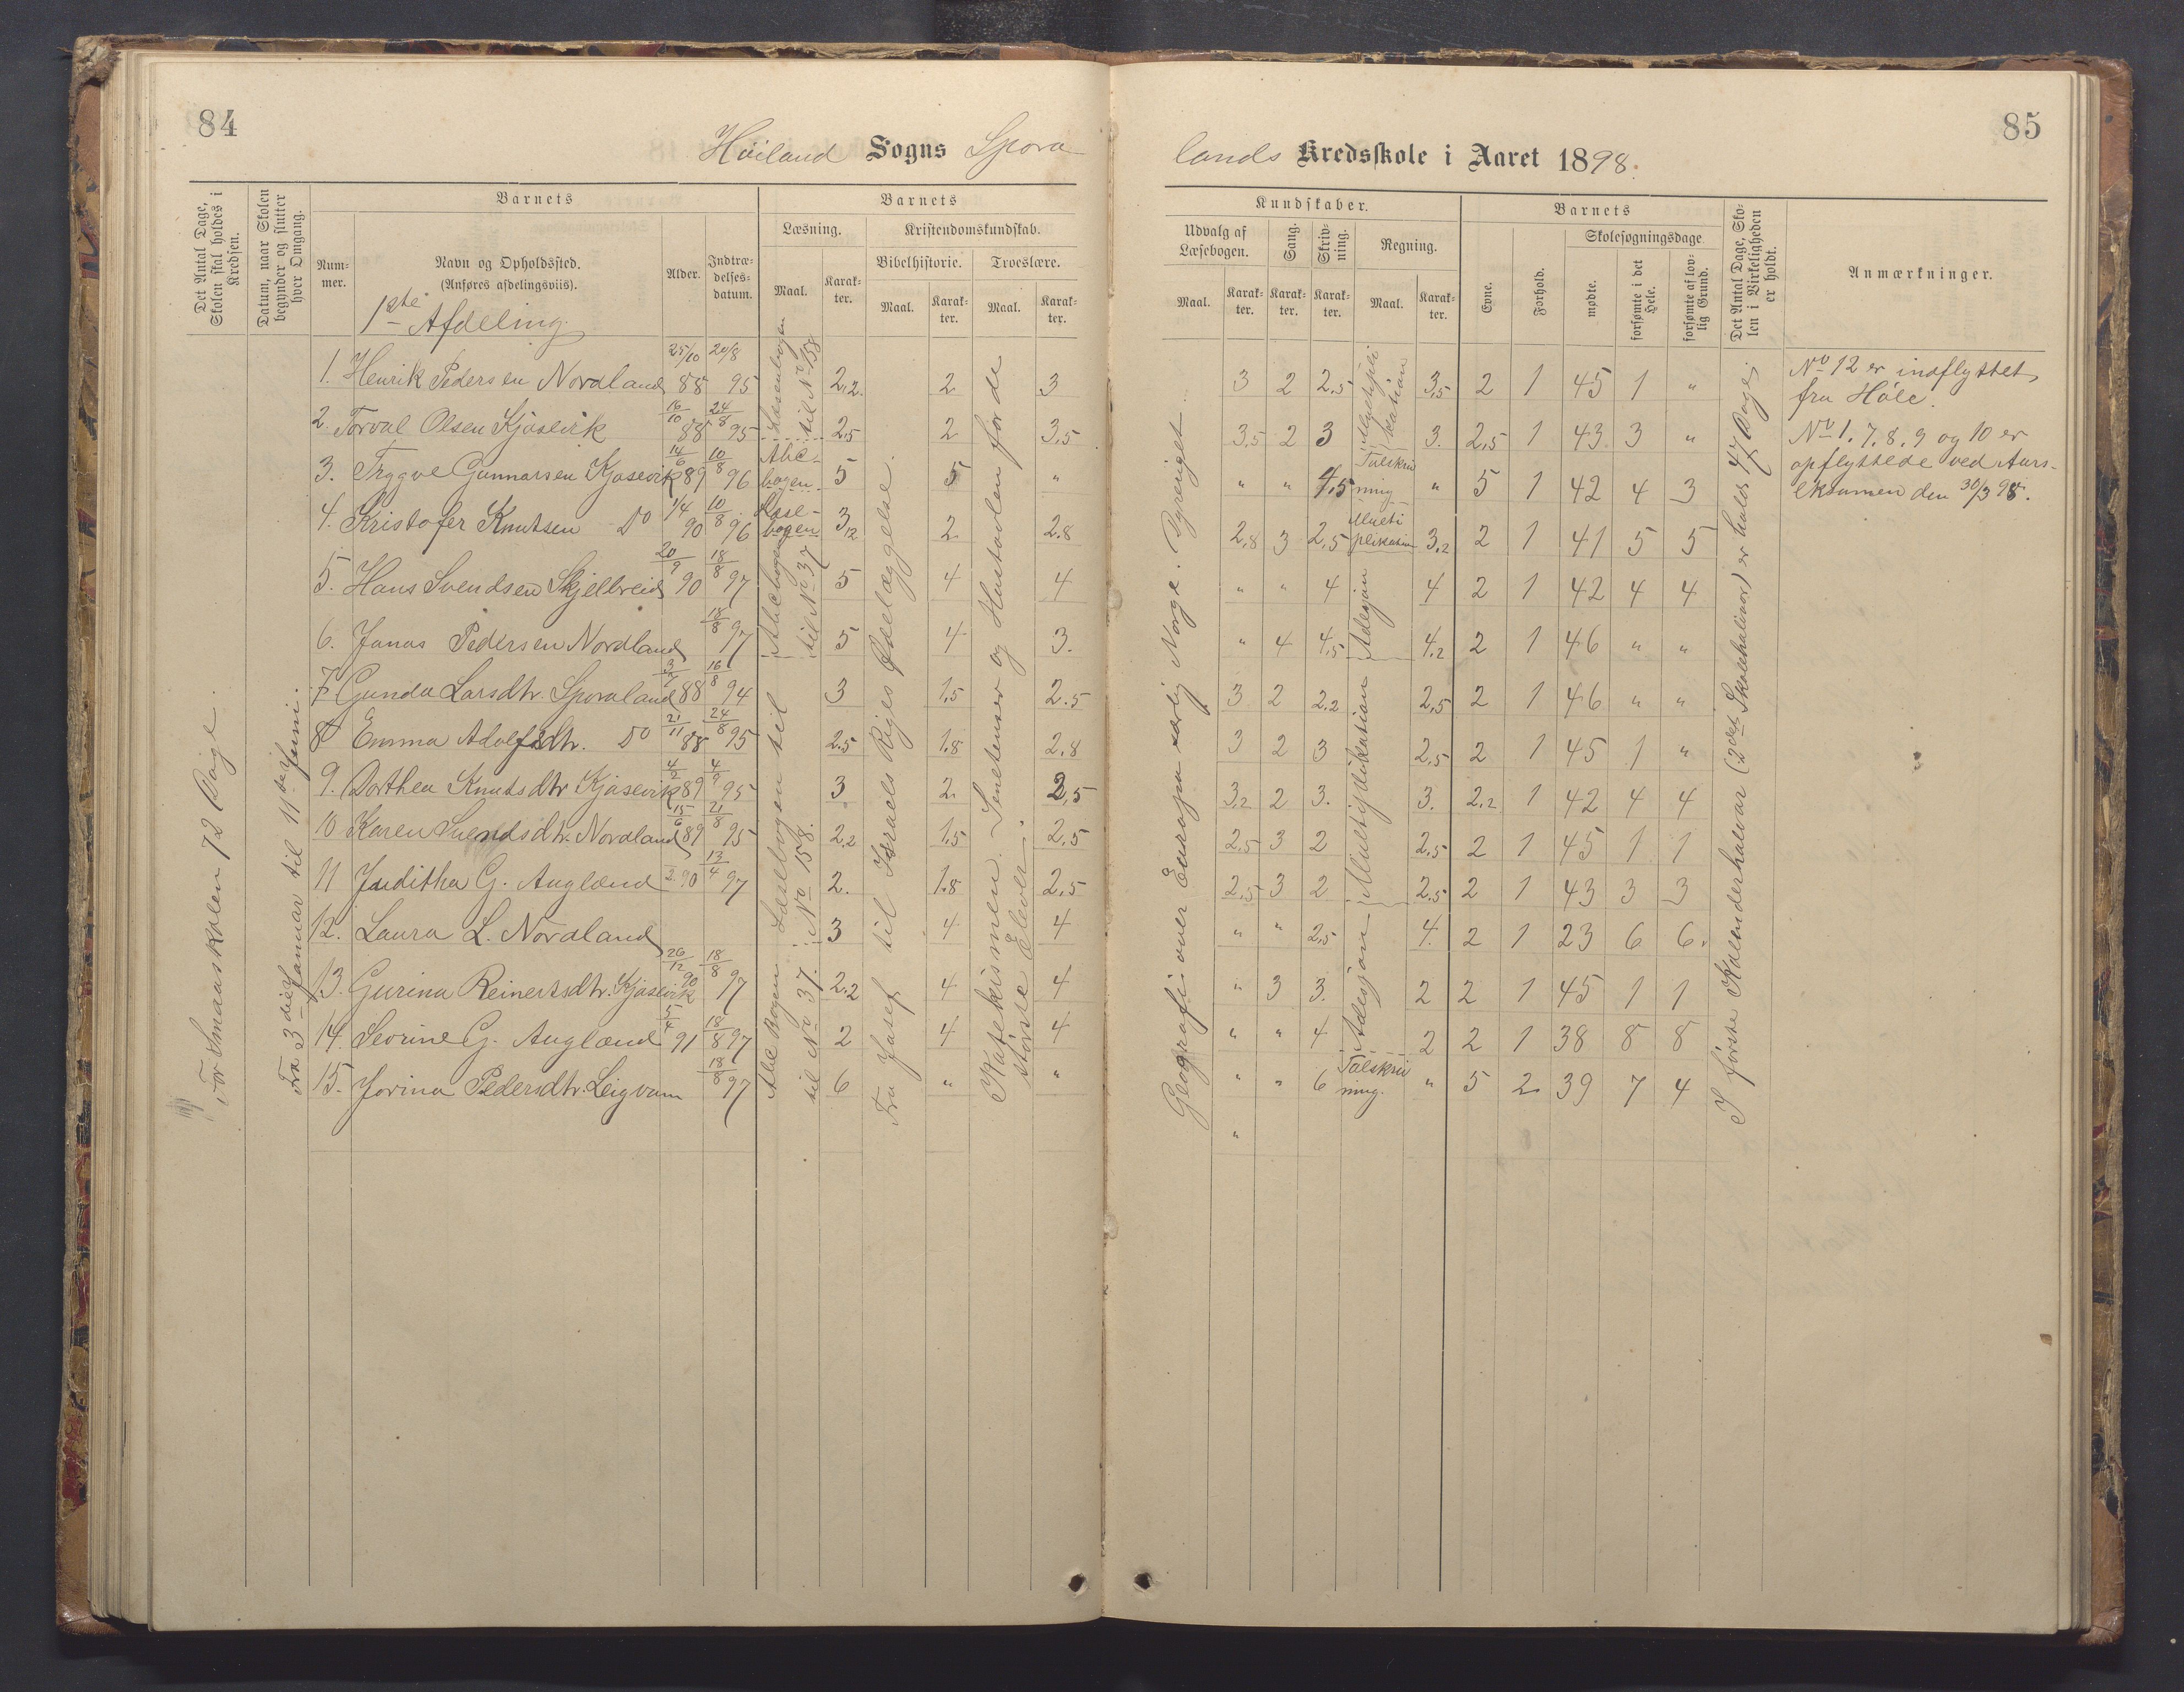 84
Høiland Sogns Spora-
Det Antal Dage, Skolen skal holdes i Kredsen.
Datum, naar Skolen begynder og slutter hver Omgang.
Barnets
Barnets
Læsning.
Kristendomskundskab.
Num-mer.
Navn og Opholdssted.
(Anføres afdelingsviis).
Alder.
Indtræ-delses-datum.
Maal.
Karak-ter.
Bibelhistorie.
Troeslære.
Maal.
Karak-ter.
Maal.
Karak-ter.
1ste Afdeling
For Smaaskolen 72 Dage.
Fra 3die Januar til 11te Juni.
1. Henrik Pedersen Nordland 25/10 88 20/8 95 2,2. 2 3
2. Torval Olsen Kjosevik 16/10 88 24/8 95 2,5 2 3,5
3. Trygve Gunnarsen Kjosevik 14/6 89 10/8 96 5 5 "
4. Kristofer Knutsen Do 1/4 90 10/8 96 3,2 2 2.8
5. Hans Svendsen Skjelbreid 20/9 90 18/8 97 5 4 4
6. Jonas Pedersen Nordland 18/8 97 5 4 3.
7. Gunda Larsdtr. Sporaland 3/7 88 16/8 94 3 1,5 2.5
8 Emma Adolfsdtr. Do 21/11 88 24/8 95 2.5 1.8 2.8
9. Dorthea Knutsdtr Kjosevik 4/2 89 4/9 95 3 2. 2,5
10 Karen Svendsdtr. Nordland 15/6 89 21/8 95 2,2 1,5 2,5
11 Juditha G. Auglænd 2 90 13/4 97 2. 1.8 2,5
12. Laura L. Nordland 3 4 4
13. Gurina Reinertsdtr. Kjosevik 26/12 90 18/8 97 2.2 4 4
14. Sevrine G. Auglænd 5/4 91 18/8 97 2 4 4
15. Jorina Pedersdtr. Leigvam 18/8 97 6 " "
Læsebogen til No 158
Abc-bogen.
Læse-bogen
Abcbogen til No 37
Læsebogen til No 158.
Abc Bogen til No 37.
Fra Josef til Israels Riges Ødelæggelse.
Katekismen. Senetenser og Hustavlen for de største Elever.
85
lands Kredsskole i Aaret 1898.
Kundskaber.
Barnets
Udvalg af Læsebogen.
Sang.
Skriv-ning.
Regning.
Skolesøgningsdage.
Maal.
Karak-ter.
Karak-ter.
Karak-ter.
Maal.
Karak-ter.
Evne.
Forhold.
mødte.
forsømte i det Hele.
forsømte af lov-lig Grund.
Det Antal Dage, Sko-len i Virkeligheden er holdt.
Anmærkninger.
Geografi over Europa særlig Norge. Dyreriget
3 2 2,5 3,5 2 1 45 1 "
3,5 2 3 3. 2,5 1 43 3 "
" " 4,5 " 5 1 42 4 3
2,8 3 2,5 3,2 2 1 41 5 5
" " 4 4 2 1 42 4 4
" 4 4,5 4,2 2 1 46 " "
3 2 2.2 2,5 2 1 46 " "
3 2 3 2,5 2 1 45 1 "
3,2 2 3. 3. 2,2 1 42 4 4
2,5 3 2 2,5 2 1 45 1 1
2,5 3 2 2.5 2 1 43 3 3
" " 2,5 4. 2 1 23 6 6.
" 3 3. 2 2 1 45 1 1
" " 4 2 2 1 38 8 8
" " 6 " 5 2 39 7 4
"
Multipli kation
Talskriv ning
Multi plikation
Adesjon
Multiplikation
Adesjon
Talskriv ning.
I første Kalenderhalvaar (2det Skolehalvaar) er holdt 47 Dage.
No 12 er indflyttet
fra Høle.
No 1. 7. 8. 9 og 10 er
opflyttede ved Aars-
eksamen den 30/3 98.